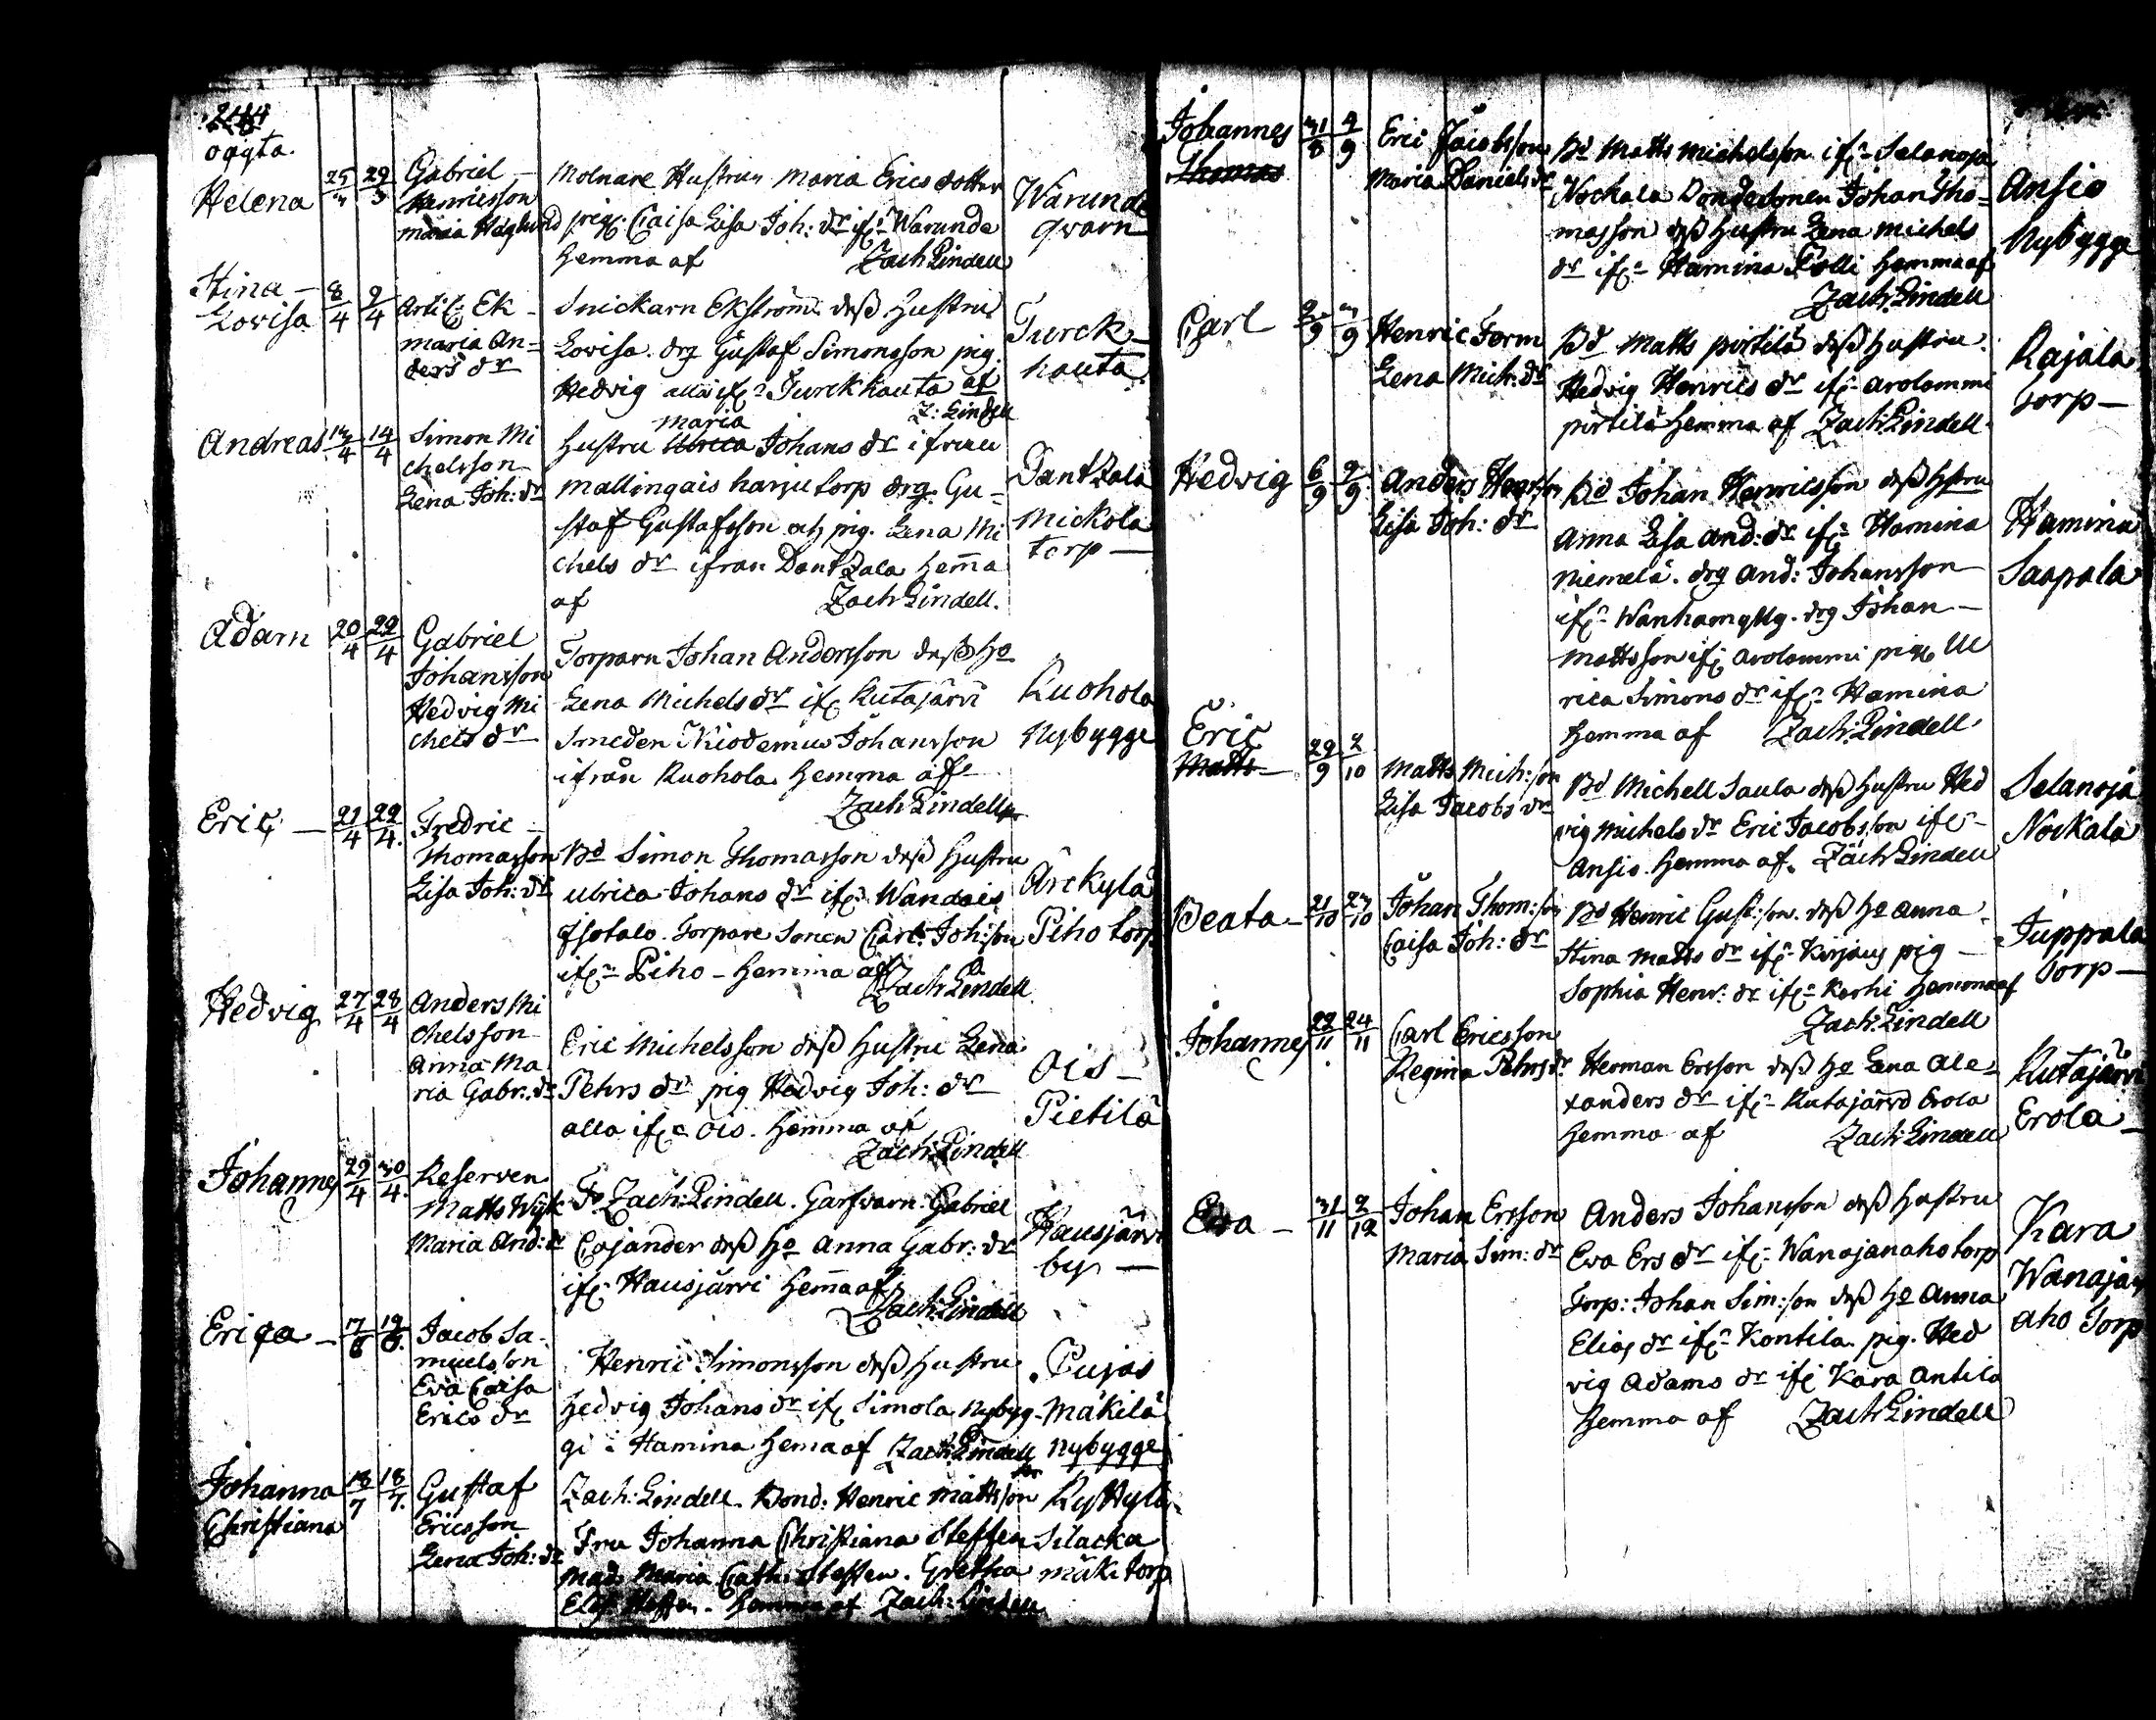 oägta.
Helena 25/3 29/3 Gabriel Henricsson Maria Häglund
Molnare Hustrun Maria Erics dotter
pig. Caisa Lisa Joh: dr ifr. Warunda
hemma af Zach Lindell
Warunda qvarn
Stina Lovisa 8/4 9/4 Artil. Ek Maria Anders dr
Snickarn Ekström dess Hustru
Lovisa. drg Gustaf Simonsson pig.
Hedvig alla ifr. Turckhauta af
Z: Lindell
Turckhauta
Andreas 13/4 14/4 Simon Michelsson Lena Joh: dr
Maria
Hustru Ulrica Johans dr ifrån
Mallingais harju torp drg. Gu-
staf Gustafsson och pig. Lena Mi
chels dr ifran Dantzala hemma
af Zach Lindell.
Dantzala Mickola torp
Adam 20/4 22/4 Gabriel Johansson Hedvig Michels dr
Torparn Johan Andersson dess Ho
Lena Michels dr ifr. Kutajärvi
Smeden Nicodemus Johansson
ifrån Kuohola hemma af
Zach Lindell
Kuohola Nybygge
Eric 21/4 22/4 Fredric Thomasson Lisa Joh: dr
Bd Simon Thomasson dess Hustru
Ulrica Johans dr ifr. Wandais
Isotalo. Torpare Sonen Carl Joh:son
ifr. Piho hemma af Zach Lindell
Arckylä Piho torp
Hedvig 27/4 28/4 Anders Michelsson Anna Maria Gabr: dr
Eric Michelsson dess Hustru Lena
Pehrs dr pig Hedvig Joh: dr
alla ifr. Ois. hemma af
Zach: Lindell
Ois Pietilä
Johannes 29/4 30/4 Reserven Matts Wysk Maria And: dr
Zach: Lindell. Garfvarn Gabriel
Cajander dess Ho Anna Gabr: dr
ifr. Hausjärvi hemma af
Zach: Lindell
Hausjärvi by
Erica 17/6 19/6 Jacob Samuelsson Eva Caisa Erics dr
Henric Simonsson dess Hustru
Hedvig Johans dr ifr. Simola Nybyg-
ge i Hamina hemma af Zach: Lindell
Pujas Mäkilä Nybygge
Johanna Christiana 13/7 18/7 Gustaf Ericsson Lena Joh: dr
Zach: Lindell. Bond: Henric Mattsson
Fru Johanna Christiana Steffen
Mad. Maria Cath: Steffen. Gretha
Elis. Steffen. Hemma af Zach: Lindell
Ryttylä Silacka mäki torp
Johannes Thomas 31/8 4/9 Eric Jacobsson Maria Daniels dr
Bd Matts Michelsson ifr. Selanoja
Nockala Bondesonen Johan Tho-
masson dess Hustru Lena Michels
dr ifr. Hamina Polli hemma af
Zach: Lindell
Ansio Nybygge
Carl 2/9 3/9 Henric Form Lena Mich: dr
Bd Matts pirtilä dess hustru
Hedvig Henrics dr ifr. Arolammi
pirtilä hemma af Zach: Lindell
Rajala torp
Hedvig 6/9 9/9 Anders Lisa Joh: dr
Bd Johan Henricsson dess Hstru
Anna Lisa And: dr ifr. Hamina
Niemelä. drg And: Johansson
ifr. Wanhamylly. drg Johan
Mattsson ifr. Arolammi pig. Ul
rica Simons dr ifr. Hamina
hemma af Zach: Lindell
Hamina Saapala
Eric Matts 29/9 2/10 Matts Mich:son Lisa Jacobs dr
Bd Michell Saula dess hustru Hed
vig Michels dr Eric Jacobsson ifr.
Ansio. hemma af. Zach Lindell
Selanoja Nockala
Beata 21/10 23/10 Johan Thom:son Caisa Joh: dr
Bd Henric Gust:son. dess Ho Anna
Stina Matts dr ifr. Kirjais pig
Sophia Henr: dr ifr. Karhi hemma af
Zach: Lindell
Juppala torp
Johannes 22/11 24/11 Carl Ericsson Regina Pehrs dr
Herman Ersson dess Ho Lena Ale-
xanders dr ifr. Kutajärvi Erola
hemma af Zach: Lindell
Kutajärvi Erola
Eva 31/11 2/12 Johan Ersson Maria Sim: dr
Anders Johansson dess hustru
Eva Ers dr ifr. Wanajanaho torp
Torp: Johan Sim:son dess Ho Anna
Elias dr ifr. Kontila. pig. Hed
vig Adams dr ifr. Kara Antila
hemma af Zach Lindell
Kara Wanajan aho Torp